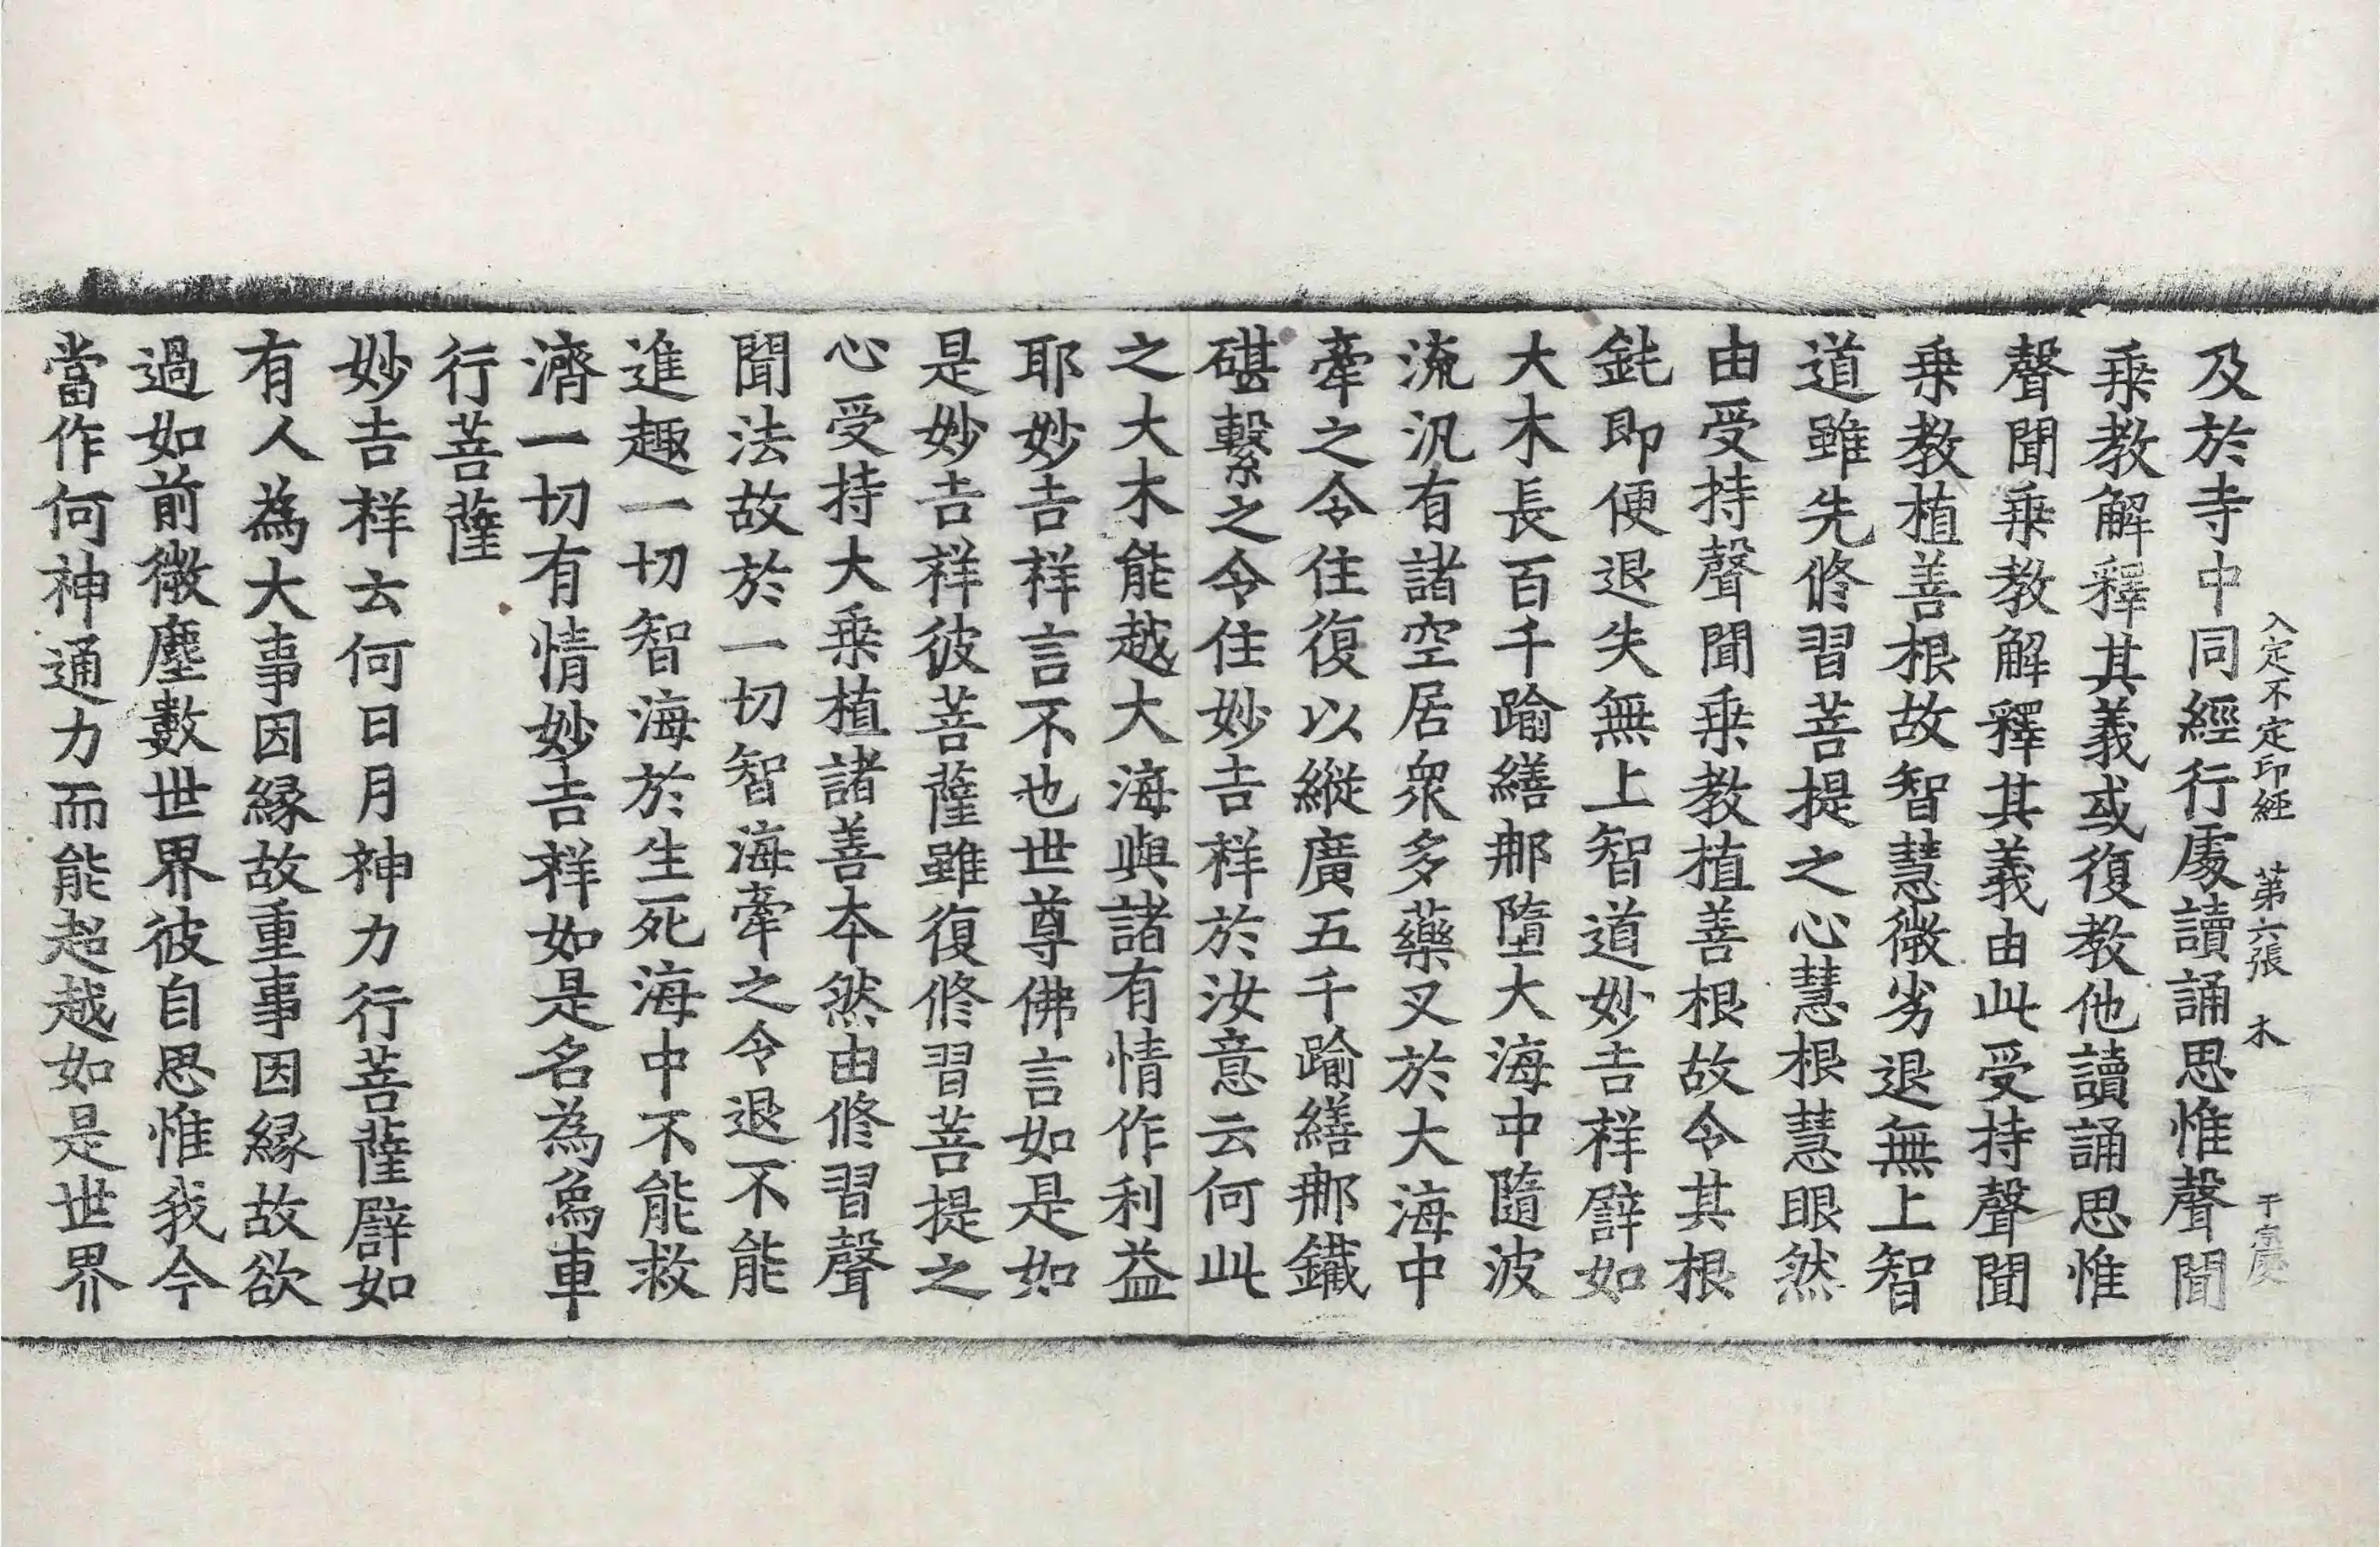 入定不定印經 第六張 木
及於寺中同經行處讀誦思惟聲聞
乗教解釋其義或復教他讀誦思惟
聲聞乗教解釋其義由此受持聲聞
乗教植善根故智慧微劣退無上智
道雖先修習菩提之心慧根慧眼然
由受持聲聞乗教植善根故令其根
鈍即便退失無上智道妙吉祥譬如
大木長百千踰繕那墮大海中隨波
流汎有諸空居衆多藥叉於大海中
牽之令住復以縱廣五千踰繕那鐵
碪繫之令住妙吉祥於汝意云何此
之大木能越大海與諸有情作利益
耶妙吉祥言不也世尊佛言如是如
是妙吉祥彼菩薩雖復修習菩提之
心受持大乗植諸善本然由修習聲
聞法故於一切智海牽之令退不能
進趣一切智海於生死海中不能救
濟一切有情妙吉祥如是名為象車
行菩薩
妙吉祥云何日月神力行菩薩譬如
有人為大事因緣故重事因緣故欲
過如前微塵數世界彼自思惟我今
當作何神通力而能超越如是世界